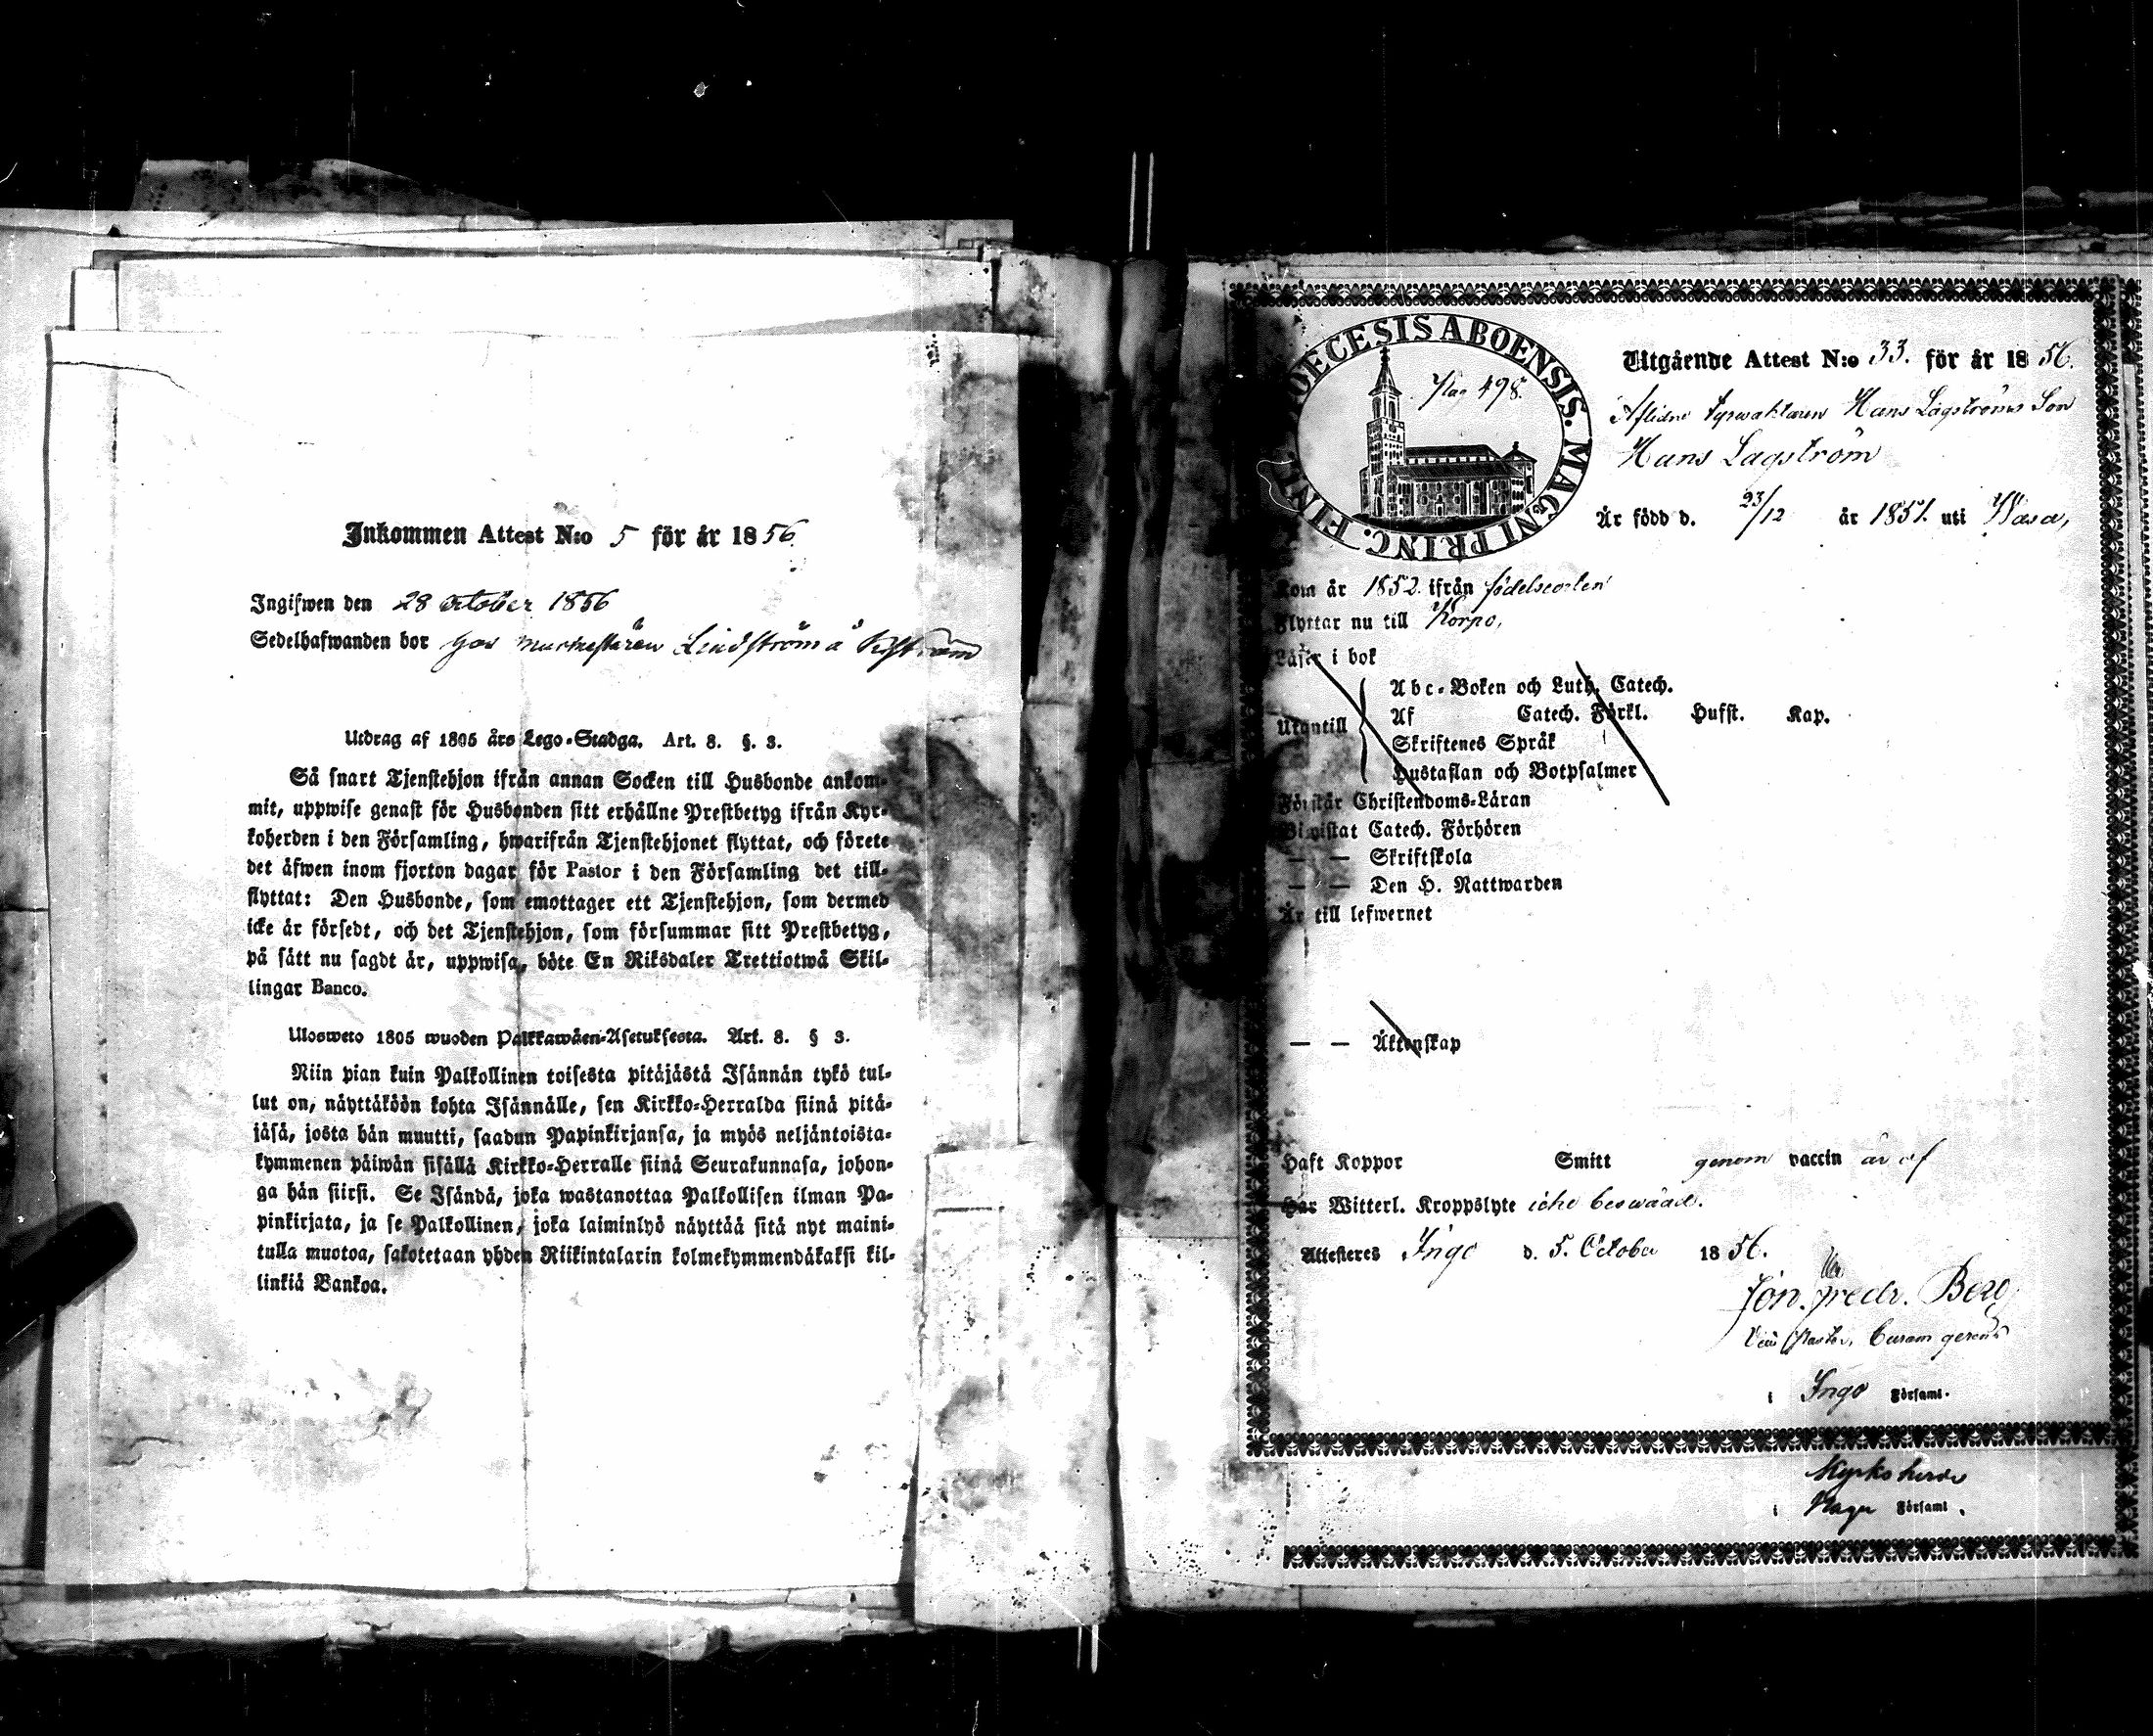 Inkommen Attest N:o 5 för år 1856
Ingifwen den 28 october 1856
Sedelhafwanden bor hos Lindström å
Utdrag af 1805 års Lego-Stadga. Art. 8. §. 3.
Så snart Tjenstehjon ifrån annan Socken till Husbonde ankom-
mit, uppwise genast för Husbonden sitt erhållne Prestbetyg ifrån Kyr-
koherden i den Församling, hwarifrån Tjenstehjonet flyttat, och förete
det äfwen inom fjorton dagar för Pastor i den Församling det till-
flyttat: Den Husbonde, som emottager ett Tjenstehjon, som dermed
icke är försedt, och det Tjenstehjon, som försummar sitt Prestbetyg,
på sätt nu sagdt är, uppwisa, böte En Riksdaler Trettiotwå Skil-
lingar Banco.
Ulosweto 1805 wuoden Palkkawäen-Asetuksesta. Art. 8. § 3.
Niin pian kuin Palkollinen toisesta pitäjästä Isännän tykö tul-
lut on, näyttäköön kohta Isännälle, sen Kirkko-Herralda siinä pitä-
jäsä, josta hän muutti, saadun Papinkirjansa, ja myös neljäntoista-
kymmenen päiwän sisällä Kirkko-Herralle siinä Seurakunnasa, johon-
ga hän siirsi. Se Isändä, joka wastanottaa Palkollisen ilman Pa-
pinkirjata, ja se Palkollinen, joka laiminlyö näyttää sitä nyt maini-
tulla muotoa, sakotetaan yhden Riikintalarin kolmekymmendäkaksi kil-
linkiä Bankoa.
DIOECESIS ABOENSIS. MAGNI PRINC. FINL.
pag 498.
Utgående Attest N:o 33. för år 1856.
Aflidne fyrwaktaren Hans Lagströms Son
Hans Lagström
Är född d. 23/12 år 1851. uti Wasa,
Kom år 1852. ifrån födelseorten
Flyttar nu till Korpo,
Läser i bok
Utantill
Abc-Boken och Luth. Catech.
Af Catech. Förkl. Hufst. Kap.
Skriftenes Språk
Hustaflan och Botpsalmer
Förstår Christendoms-Läran
Biwistat Catech. Förhören
— — Skriftskola
— — Den H. Nattwarden
Är till lefwernet
— — Äktenskap
Haft Koppor Smitt genom vaccin är af
Har Witterl. Kroppslyte icke beswärad.
Attesteres Ingo d. 5. October 1856.
Jon. Fredr. Berg
Vice Pastor, Curam gerens
i Ingo Församl.
Kyrkoherde
i Nagu Församl.